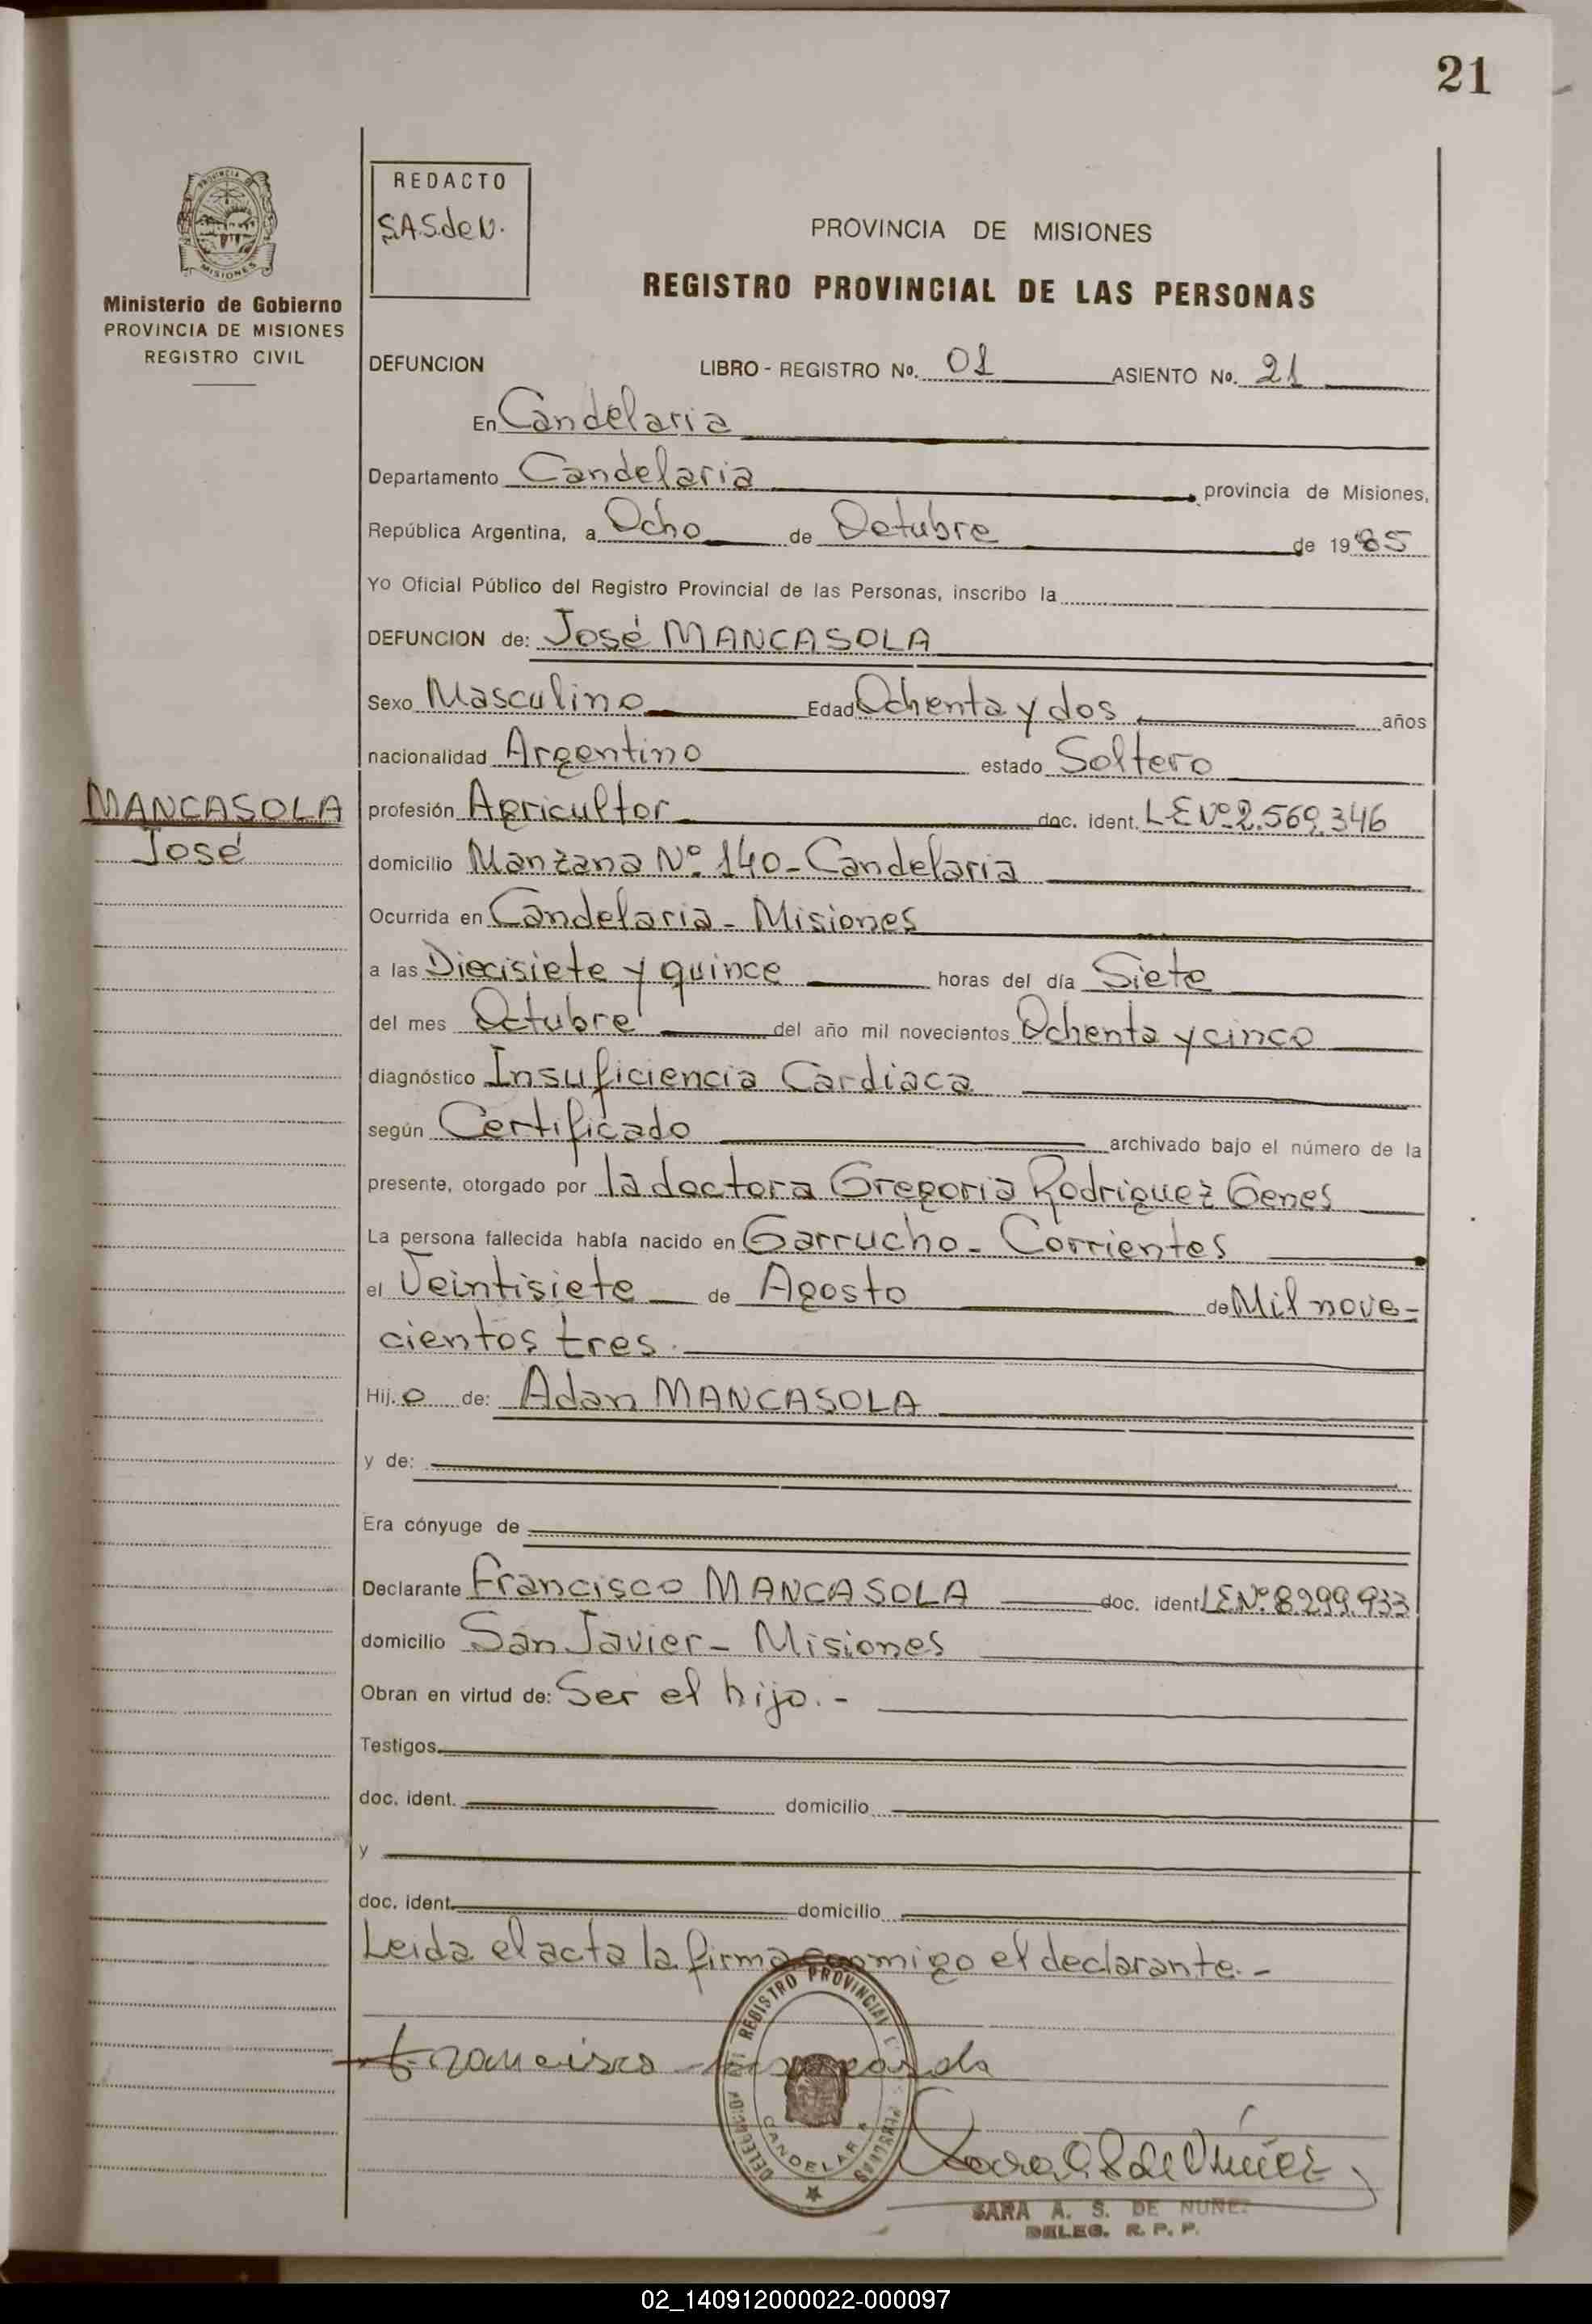 21
PROVINCIA DE
MISIONES
Ministerio de Gobierno
PROVINCIA DE MISIONES
REGISTRO CIVIL
REDACTO
S.A.S.de N.
PROVINCIA DE MISIONES
REGISTRO PROVINCIAL DE LAS PERSONAS
DEFUNCION LIBRO - REGISTRO No. 01 ASIENTO No. 21
En Candelaria
Departamento Candelaria provincia de Misiones,
República Argentina, a Ocho de Octubre de 1985
Yo Oficial Público del Registro Provincial de las Personas, inscribo la
DEFUNCION de: José MANCASOLA
Sexo Masculino Edad Ochenta y dos años
nacionalidad Argentino estado Soltero
MANCASOLA
José
profesión Agricultor doc. ident. L.E Nº 2.569.346
domicilio Manzana Nº 140 - Candelaria
Ocurrida en Candelaria - Misiones
a las Diecisiete y quince horas del día Siete
del mes Octubre del año mil novecientos Ochenta y cinco
diagnóstico Insuficiencia Cardiaca
según Certificado archivado bajo el número de la
presente, otorgado por la doctora Gregoria Rodriguez Genes
La persona fallecida había nacido en Garrucho - Corrientes
el Veintisiete de Agosto de Mil nove-
cientos tres.
Hij.o de: Adan MANCASOLA
y de:
Era cónyuge de
Declarante Francisco MANCASOLA doc. ident. L.E.Nº 8.299.933
domicilio San Javier - Misiones
Obran en virtud de: Ser el hijo. -
Testigos
doc. ident. domicilio
y
doc. ident. domicilio
Leida el acta la firma conmigo el declarante. -
Francisco
DELEGACION REGISTRO PROVINCIAL
CANDELARIA
Sara A S de Núñez
SARA A. S. DE NUÑEZ
DELEG. R. P. P.
02_140912000022-000097